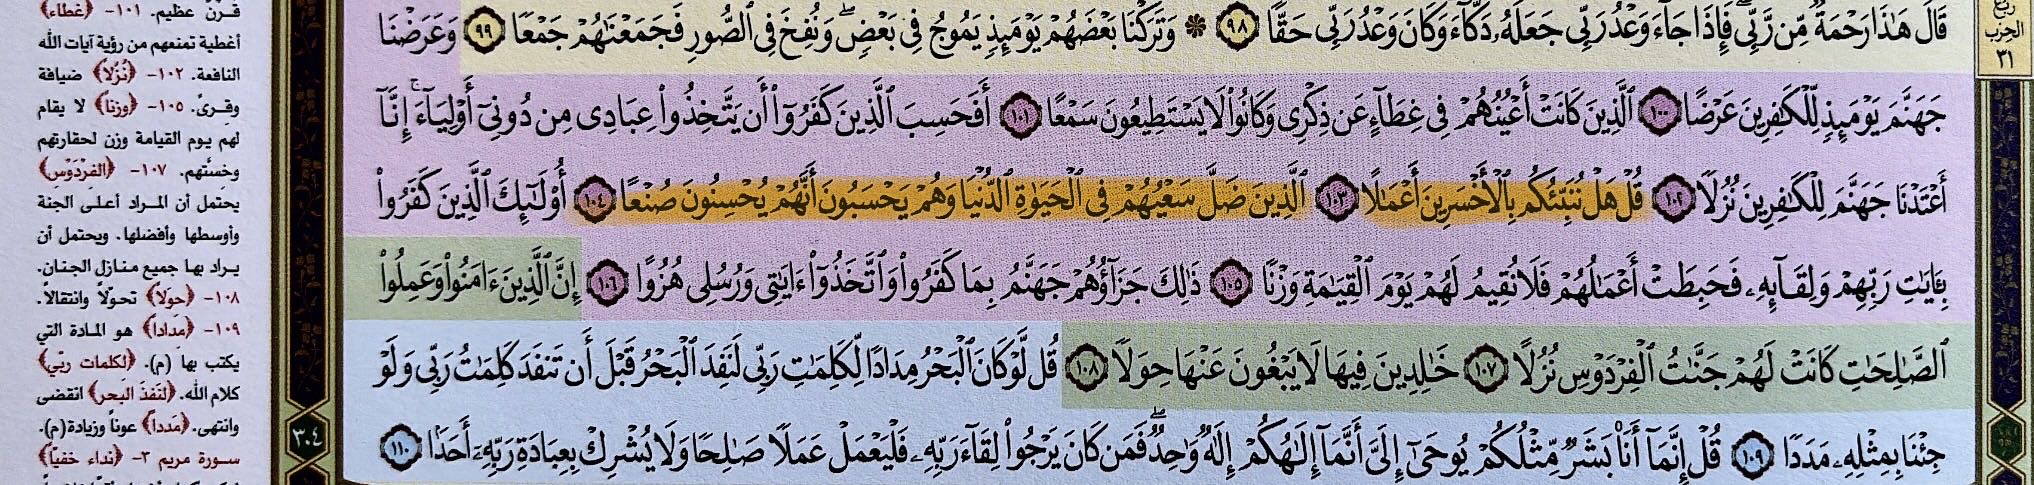 قَالَ هَٰذَا رَحْمَةٌ مِّن رَّبِّي ۖ فَإِذَا جَآءَ وَعْدُ رَبِّي جَعَلَهُۥ دَكَّآءَ ۖ وَكَانَ وَعْدُ رَبِّي حَقًّا ٩٨ ۞ وَتَرَكْنَا بَعْضَهُمْ يَوْمَئِذٍ يَمُوجُ فِي بَعْضٍ ۖ وَنُفِخَ فِي ٱلصُّورِ فَجَمَعْنَٰهُمْ جَمْعًا ٩٩ وَعَرَضْنَا
جَهَنَّمَ يَوْمَئِذٍ لِّلْكَٰفِرِينَ عَرْضًا ١٠٠ ٱلَّذِينَ كَانَتْ أَعْيُنُهُمْ فِي غِطَآءٍ عَن ذِكْرِي وَكَانُوا۟ لَا يَسْتَطِيعُونَ سَمْعًا ١٠١ أَفَحَسِبَ ٱلَّذِينَ كَفَرُوٓا۟ أَن يَتَّخِذُوا۟ عِبَادِي مِن دُونِيٓ أَوْلِيَآءَ ۚ إِنَّآ
أَعْتَدْنَا جَهَنَّمَ لِلْكَٰفِرِينَ نُزُلًا ١٠٢ قُلْ هَلْ نُنَبِّئُكُم بِٱلْأَخْسَرِينَ أَعْمَٰلًا ١٠٣ ٱلَّذِينَ ضَلَّ سَعْيُهُمْ فِي ٱلْحَيَوٰةِ ٱلدُّنْيَا وَهُمْ يَحْسَبُونَ أَنَّهُمْ يُحْسِنُونَ صُنْعًا ١٠٤ أُو۟لَٰٓئِكَ ٱلَّذِينَ كَفَرُوا۟
بِـَٔايَٰتِ رَبِّهِمْ وَلِقَآئِهِۦ فَحَبِطَتْ أَعْمَٰلُهُمْ فَلَا نُقِيمُ لَهُمْ يَوْمَ ٱلْقِيَٰمَةِ وَزْنًا ١٠٥ ذَٰلِكَ جَزَآؤُهُمْ جَهَنَّمُ بِمَا كَفَرُوا۟ وَٱتَّخَذُوٓا۟ ءَايَٰتِي وَرُسُلِي هُزُوًا ١٠٦ إِنَّ ٱلَّذِينَ ءَامَنُوا۟ وَعَمِلُوا۟
ٱلصَّٰلِحَٰتِ كَانَتْ لَهُمْ جَنَّٰتُ ٱلْفِرْدَوْسِ نُزُلًا ١٠٧ خَٰلِدِينَ فِيهَا لَا يَبْغُونَ عَنْهَا حِوَلًا ١٠٨ قُل لَّوْ كَانَ ٱلْبَحْرُ مِدَادًا لِّكَلِمَٰتِ رَبِّي لَنَفِدَ ٱلْبَحْرُ قَبْلَ أَن تَنفَدَ كَلِمَٰتُ رَبِّي وَلَوْ
جِئْنَا بِمِثْلِهِۦ مَدَدًا ١٠٩ قُلْ إِنَّمَآ أَنَا۠ بَشَرٌ مِّثْلُكُمْ يُوحَىٰٓ إِلَيَّ أَنَّمَآ إِلَٰهُكُمْ إِلَٰهٌ وَٰحِدٌ ۖ فَمَن كَانَ يَرْجُوا۟ لِقَآءَ رَبِّهِۦ فَلْيَعْمَلْ عَمَلًا صَٰلِحًا وَلَا يُشْرِكْ بِعِبَادَةِ رَبِّهِۦٓ أَحَدًۢا ١١٠
ربع
الحزب
٣١
قرن عظيم. ١٠١- ﴿غطاء﴾
أغطية تمنعهم من رؤية آيات الله
النافعة. ١٠٢- ﴿نُزُلاً﴾ ضيافة
وقرىً. ١٠٥- ﴿وزنا﴾ لا يقام
لهم يوم القيامة وزن لحقارتهم
وخسّتهم. ١٠٧- ﴿الفِرْدَوْسِ﴾
يحتمل أن المراد أعلى الجنة
وأوسطها وأفضلها. ويحتمل أن
يراد بها جميع منازل الجنان.
١٠٨- ﴿حِوَلاً﴾ تحوّلاً وانتقالاً.
١٠٩- ﴿مِدَادا﴾ هو المادة التي
يكتب بها (م). ﴿لكلمات ربّي﴾
كلام الله. ﴿لنَفدَ البَحر﴾ انقضى
وانتهى. ﴿مَددا﴾ عوناً وزيادة(م).
سورة مريم ٣- ﴿نداء خفيّاً﴾
٣٠٤